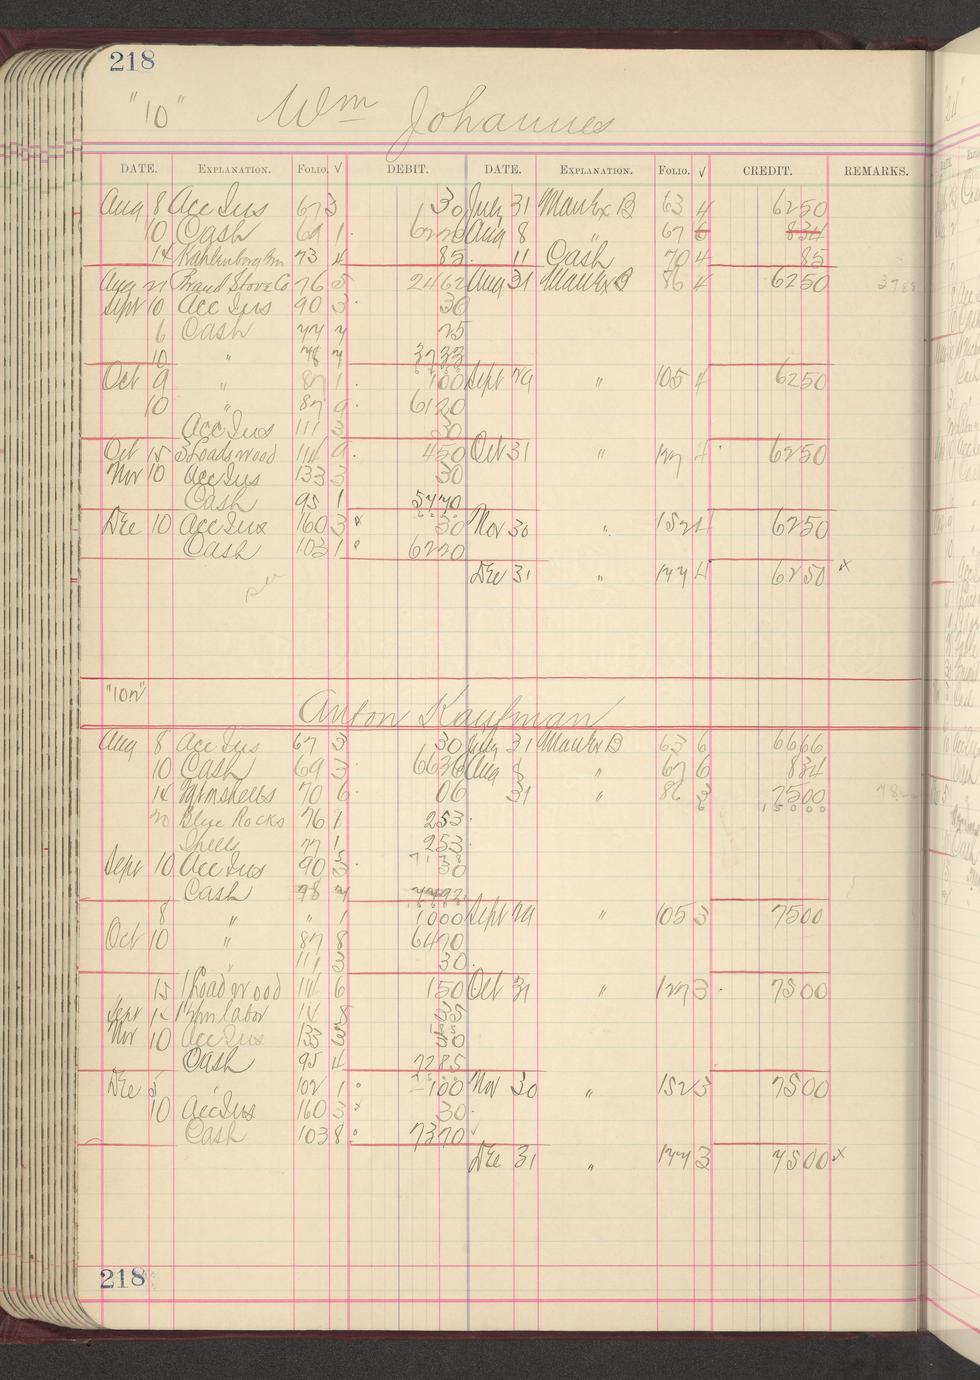 218
"10" Wm Johannes
DATE. EXPLANATION. FOLIO. √ DEBIT. DATE. EXPLANATION. FOLIO. √ CREDIT. REMARKS.
Aug 8 Acc Ins 67 3 30 July 31 Man Ex B 63 4 6250
10 Cash 69 1 6220 Aug 8 " 67 6 834
14 Kahlenberg Bros 73 4 85 11 Cash 70 4 85
Aug 21 Brand Stove Co 76 5 2462 Aug 31 Man Ex B 86 4 6250 3788
Sept 10 Acc Ins 90 3 30
6 Cash 77 7 25
10 " 78 7 3733
Oct 9 " 87 1 100 Sept 29 " 105 4 6250
10 " 87 9 6120
Acc Ins 111 3 30
Oct 15 3 Loads wood 114 9 450 Oct 31 " 127 4 6250
Nov 10 Acc Ins 133 3 30
Cash 95 1 5770
Dec 10 Acc Ins 160 3 x 30 Nov 30 " 152 4 6250
Cash 103 1 6220
Dec 31 " 177 4 6250 x
"10n"
Anton Kaufman
Aug 8 Acc Ins 67 3 30 July 31 Man Ex B 63 6 6666
10 Cash 69 3 6636 Aug 8 " 67 6 834
14 70 6 06 31 " 86 3 7500
20 Blue Rocks 76 1 253
Shells 77 1 253
Sept 10 Acc Ins 90 3 30
Cash 98 7
8 " " 1 1000 Sept 29 " 105 3 7500
Oct 10 " 87 8 6470
" 111 3 30
15 1 Load Wood 114 6 150 Oct 31 " 127 3 7500
Sept labor 14 8 35
Nov 10 Acc Ins 133 3 30
Cash 95 4 7285
Dec 5 " 102 1 100 Nov 30 " 152 3 7500
10 Acc Ins 160 3 30
Cash 103 8 7370
Dec 31 " 177 3 7500 x
218